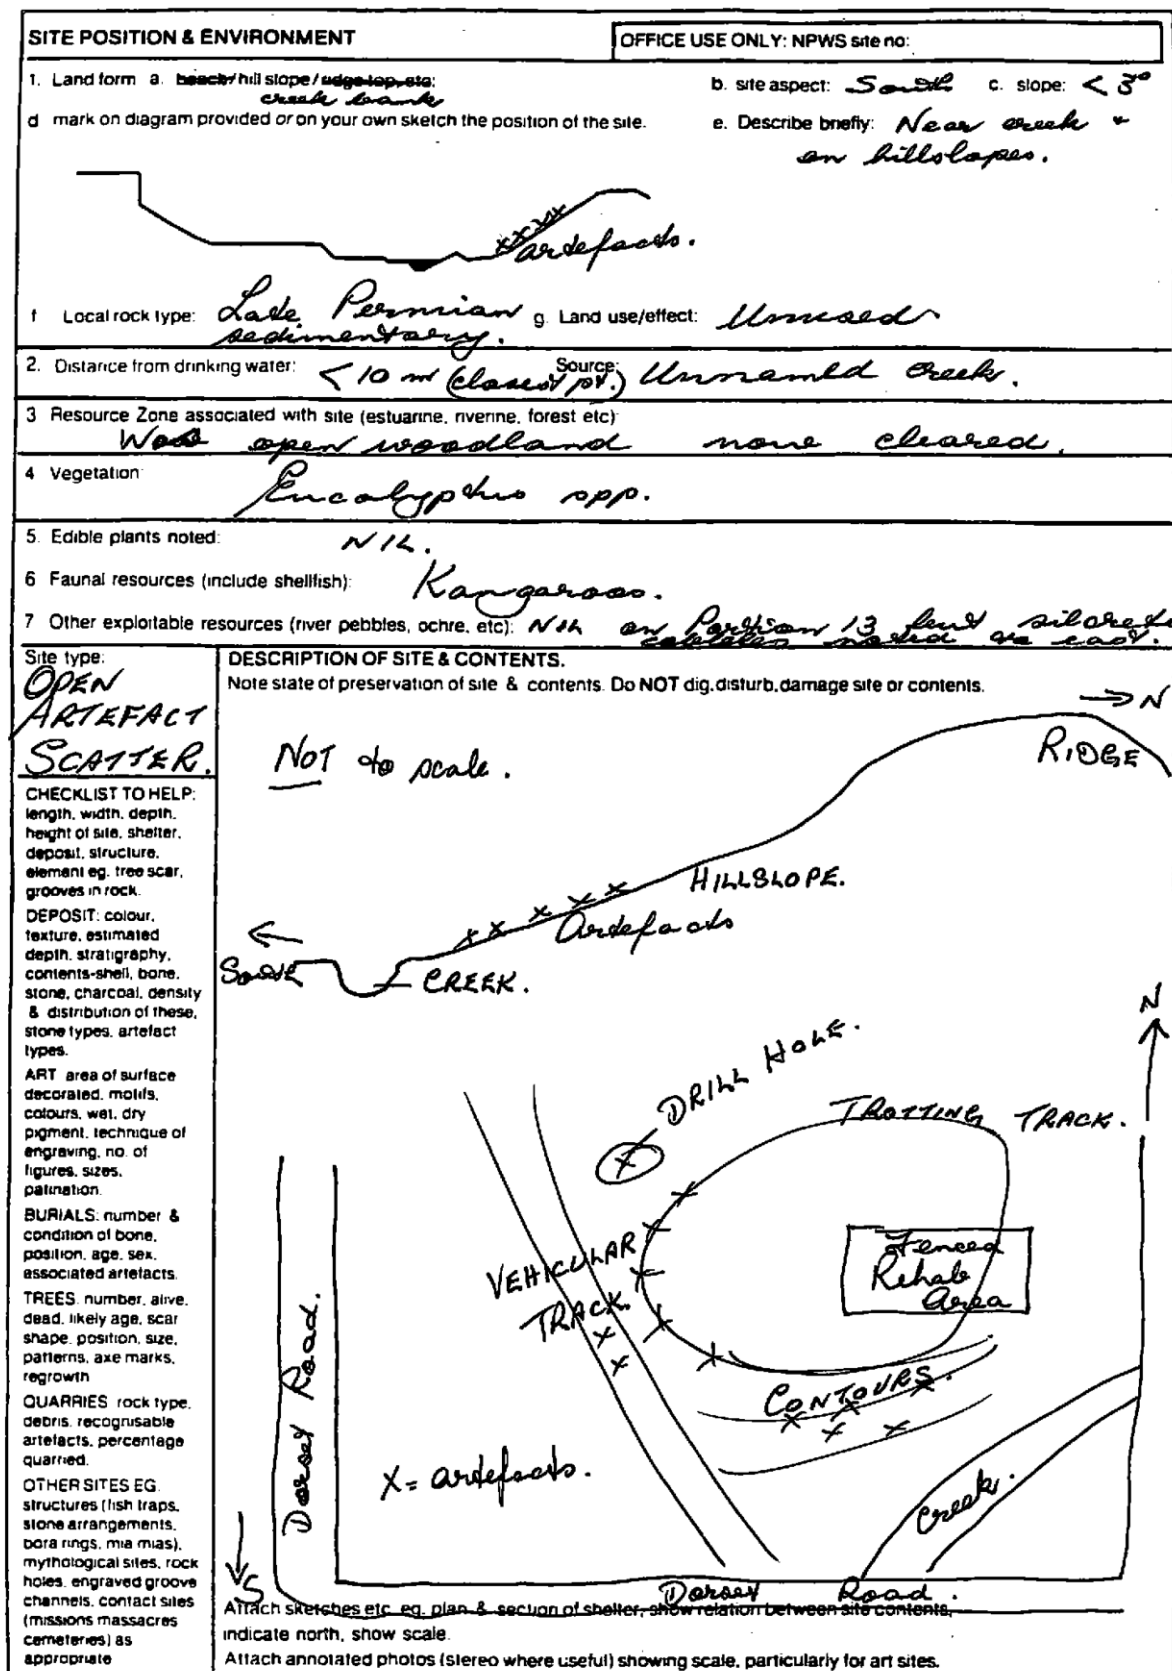 SITE POSITION & ENVIRONMENT
OFFICE USE ONLY: NPWS site no:
1. Land form a. beach/hill slope/ridge top, etc:
creek bank
b. site aspect: South c. slope: < 3°
d mark on diagram provided or on your own sketch the position of the site.
e. Describe briefly: Near creek &
on hillslopes.
artefacts.
f Local rock type: Late Permian
sedimentary.
g. Land use/effect: Unused
2. Distance from drinking water: < 10 m (closest pt.) Source: Unnamed creek.
3 Resource Zone associated with site (estuarine, riverine, forest etc)
open woodland none cleared.
4 Vegetation
Eucalyptus spp.
5. Edible plants noted: NIL.
6 Faunal resources (include shellfish): Kangaroos.
7 Other exploitable resources (river pebbles, ochre, etc): NIL on Portion 13 but silcrete
cobbles noted to east.
Site type:
OPEN
ARTEFACT
SCATTER.
DESCRIPTION OF SITE & CONTENTS.
Note state of preservation of site & contents. Do NOT dig, disturb, damage site or contents.
N
RIDGE
NOT to scale.
HILLSLOPE.
Artefacts
South
CREEK.
CHECKLIST TO HELP:
length, width, depth,
height of site, shelter,
deposit, structure,
element eg. tree scar,
grooves in rock.
DEPOSIT: colour,
texture, estimated
depth, stratigraphy,
contents-shell, bone,
stone, charcoal, density
& distribution of these,
stone types, artefact
types.
ART area of surface
decorated, motifs,
colours, wet, dry
pigment, technique of
engraving, no. of
figures, sizes,
patination.
BURIALS: number &
condition of bone,
position, age, sex,
associated artefacts.
TREES. number, alive,
dead, likely age, scar
shape, position, size,
patterns, axe marks,
regrowth
QUARRIES rock type,
debris, recognisable
artefacts, percentage
quarried.
OTHER SITES EG.
structures (fish traps,
stone arrangements,
bora rings, mia mias),
mythological sites, rock
holes, engraved groove
channels, contact sites
(missions massacres
cemeteries) as
appropriate
N
DRILL HOLE.
TROTTING TRACK.
VEHICULAR
TRACK.
Fenced
Rehab
Area
CONTOURS.
Dorsey Road.
X = artefacts.
Creek.
S
Dorsey Road.
Attach sketches etc, eg. plan & section of shelter, show relation between site contents,
indicate north, show scale.
Attach annotated photos (stereo where useful) showing scale, particularly for art sites.